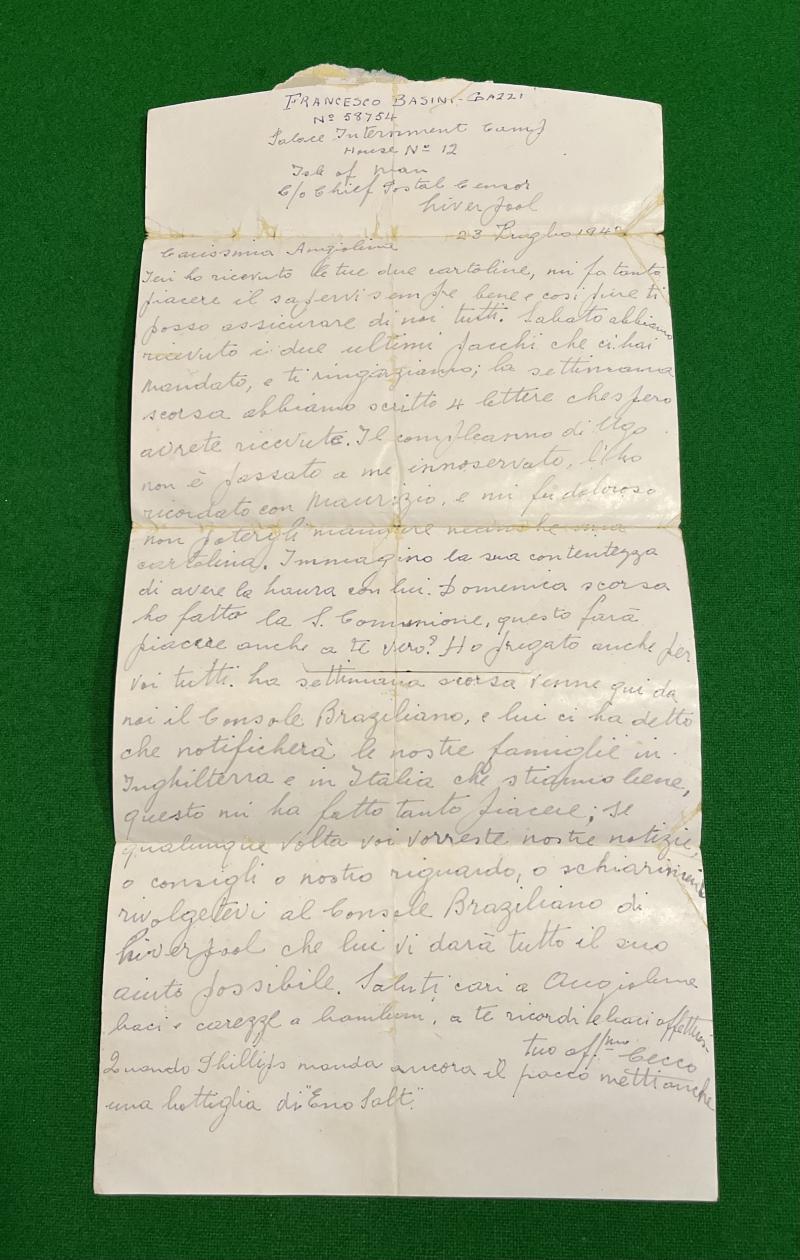 FRANCESCO BASINI-GAZZI
Nº 58754
Palace Internment Camp
House Nº 12
Isle of Man
C/o Chief Postal Censor
Liverpool
23 Luglio 194
Carissima Angiolina
Ieri ho ricevuto le tue due cartoline, mi fa tanto
piacere il sapervi sempre bene e così pure ti
posso assicurare di noi tutti. Sabato abbiamo
ricevuto i due ultimi pacchi che ci hai
mandato, e ti ringraziamo; la settimana
scorsa abbiamo scritto 4 lettere che spero
avrete ricevute. Il compleanno di Ugo
non è passato a me innoservato, l'ho
ricordato con Maurizio, e mi fu doloroso
non potergli mandare neanche una
cartolina. Immagino la sua contentezza
di avere la Laura con lui. Domenica scorsa
ho fatto la S. Comunione, questo farà
piacere anche a te vero? Ho pregato anche per
voi tutti. La settimana scorsa venne qui da
noi il Console Braziliano, e lui ci ha detto
che notificherà le nostre famiglie in
Inghilterra e in Italia che stiamo bene,
questo mi ha fatto tanto piacere; se
qualunque volta voi vorreste nostre notizie,
o consigli o nostro riguardo, o schiarimenti
rivolgetevi al Console Braziliano di
Liverpool che lui vi darà tutto il suo
aiuto possibile. Saluti cari a
baci e carezze a bambini, a te ricordi e baci
tuo aff.mo Cecco
Quando Phillips manda ancora il pacco metti anche
una bottiglia di "Eno Salt".